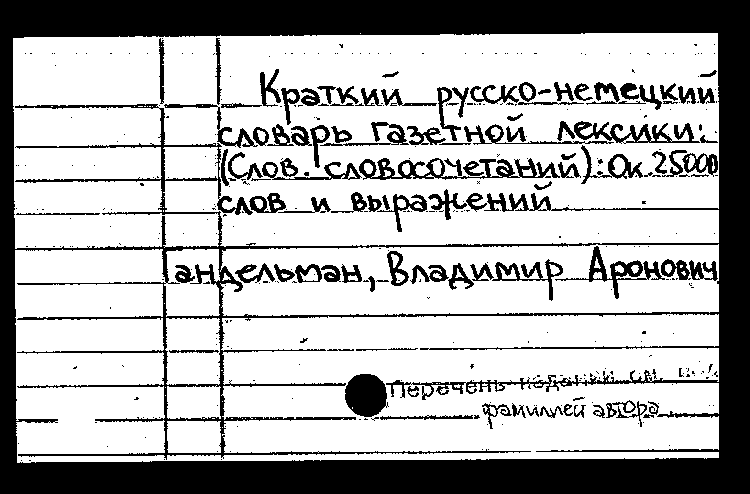 Краткий русско-немецкий
словарь газетной лексики:
(Слов. словосочетаний): Ок. 25000
слов и выражений
Гандельман, Владимир Аронович
Перечень издания см.
фамилией автора